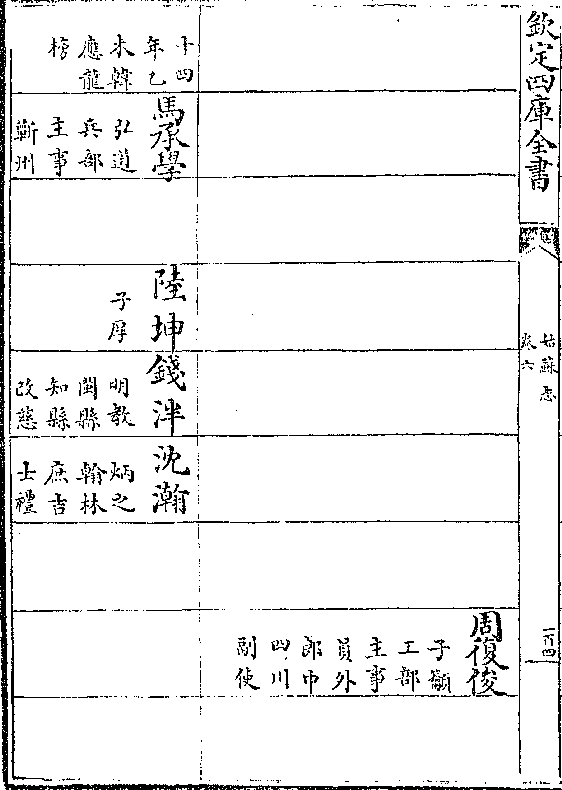 欽定四庫全書
姑蘇志
卷六
一百四
周復俊
子籲
工部
主事
員外
郎中
四川
副使
十四
年乙
未韓
應龍
榜
馬承學
弘道
兵部
主事
蘄州
陸坤
子厚
錢泮
明教
閩縣
知縣
改慈
沈瀚
炳之
翰林
庶吉
士禮